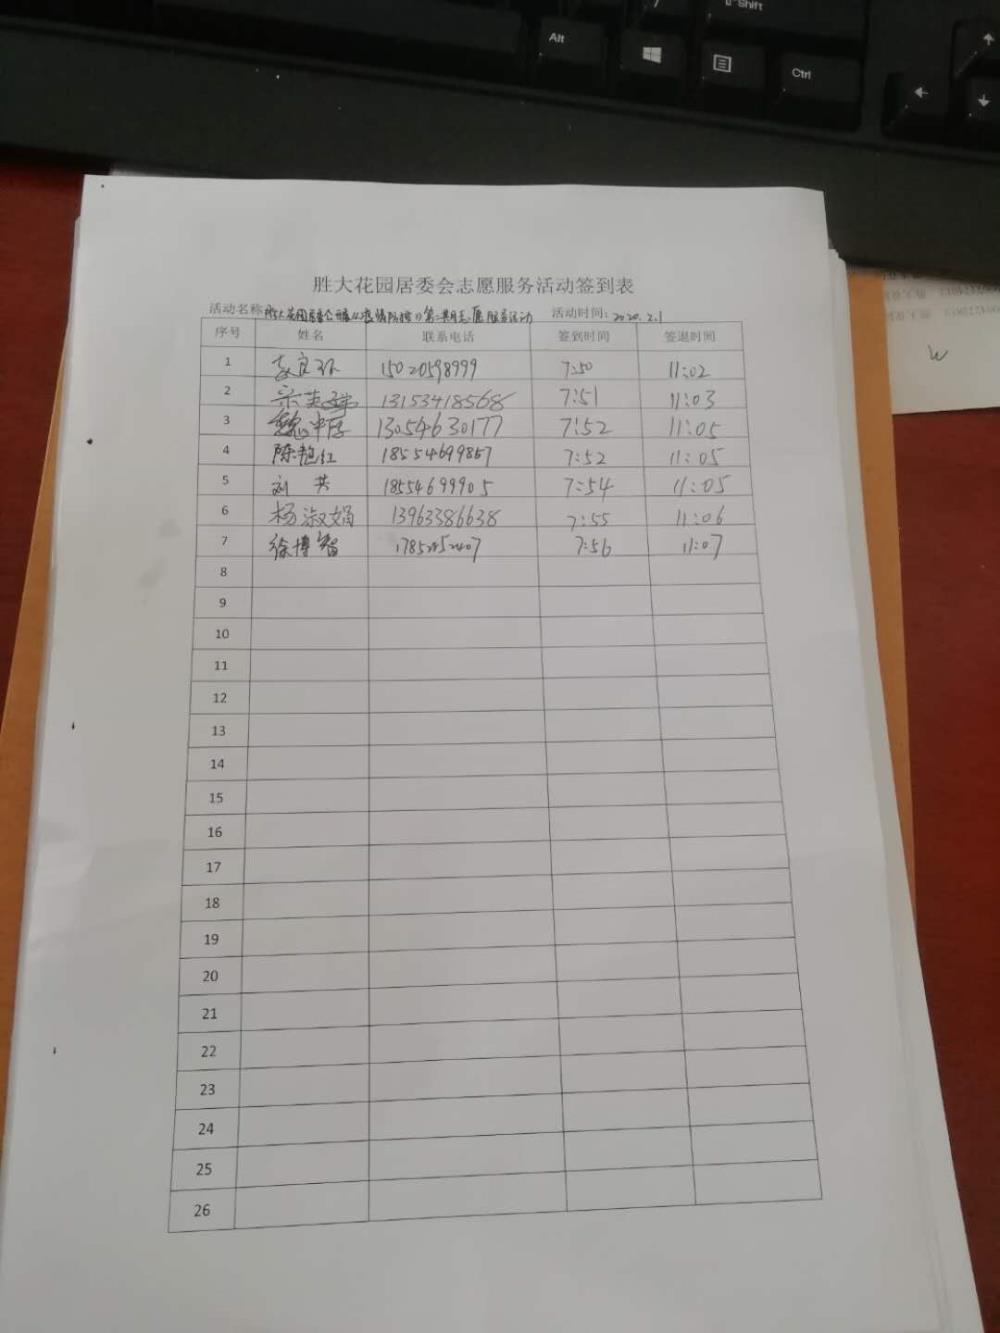 Shift
Alt
Ctrl
胜大花园居委会志愿服务活动签到表
活动名称 胜大花园居委会开展《疫情防控》第二期志愿服务活动 活动时间: 2020.2.1
序号 姓名 联系电话 签到时间 签退时间
1 15020598999 7:50 11:02
2 13153418568 7:51 11:03
3 13054630177 7:52 11:05
4 陈艳红 18554699857 7:52 11:05
5 刘 18554699905 7:54 11:05
6 杨淑娟 13963386638 7:55 11:06
7 徐博智 7:56 11:07
8
9
10
11
12
13
14
15
16
17
18
19
20
21
22
23
24
25
26